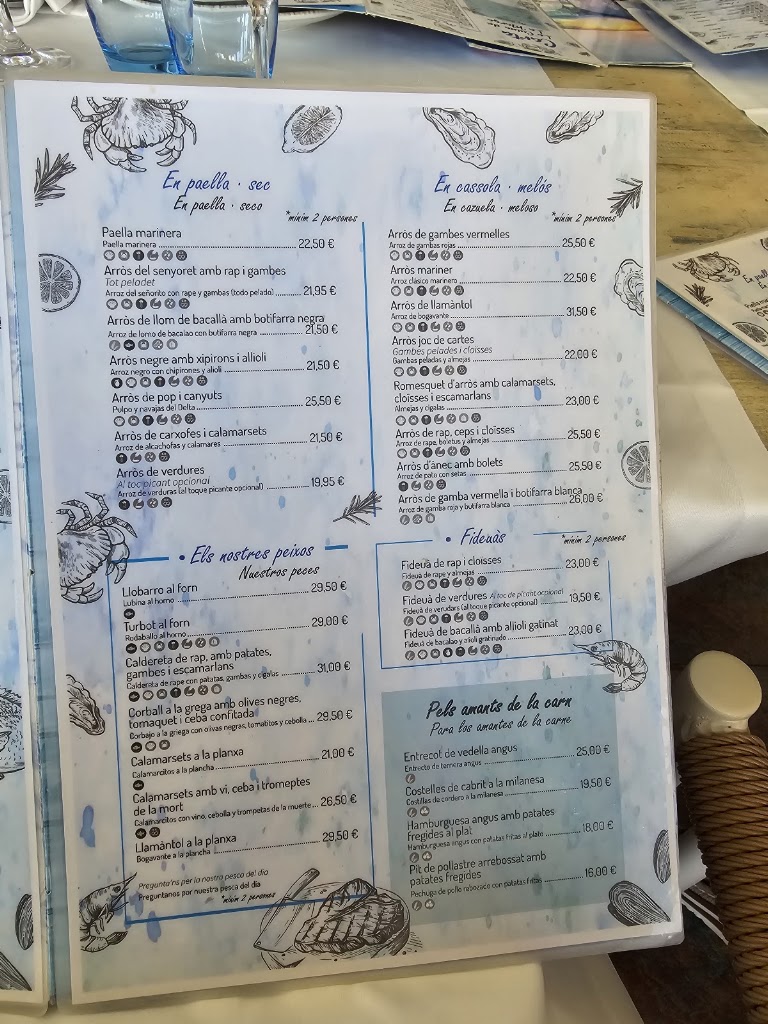 En paella · sec
En paella · seco
*mínim 2 persones
Paella marinera
Paella marinera 22,50 €
Arròs del senyoret amb rap i gambes
Tot peladet
Arroz del señorito con rape y gambas (todo pelado) 21,95 €
Arròs de llom de bacallà amb botifarra negra
Arroz de lomo de bacalao con butifarra negra 21,50 €
Arròs negre amb xipirons i allioli
Arroz negro con chipirones y alioli 21,50 €
Arròs de pop i canyuts
Pulpo y navajas del Delta 25,50 €
Arròs de carxofes i calamarsets
Arroz de alcachofas y calamares 21,50 €
Arròs de verdures
Al toc picant opcional
Arroz de verduras (al toque picante opcional) 19,95 €
Els nostres peixos
Nuestros peces
Llobarro al forn 29,50 €
Lubina al horno
Turbot al forn 29,00 €
Rodaballo al horno
Caldereta de rap, amb patates,
gambes i escamarlans 31,00 €
Caldereta de rape con patatas, gambas y cigalas
Corball a la grega amb olives negres,
tomaquet i ceba confitada
Corbajo a la griega con olivas negras, tomatitos y cebolla 29,50 €
Calamarsets a la planxa 21,00 €
Calamarcitos a la plancha
Calamarsets amb vi, ceba i trompetes
de la mort
Calamarcitos con vino, cebolla y trompetas de la muerte 26,50 €
Llamàntol a la planxa 29,50 €
Bogavante a la plancha
Pregunta'ns per la nostra pesca del dia
Preguntanos por nuestra pesca del día
*mínim 2 persones
En cassola · melós
En cazuela · meloso
*mínim 2 persones
Arròs de gambes vermelles
Arroz de gambas rojas 25,50 €
Arròs mariner
Arroz clásico marinero 22,50 €
Arròs de llamàntol
Arroz de bogavante 31,50 €
Arròs joc de cartes
Gambes pelades i cloïsses
Gambas peladas y almejas 22,00 €
Romesquet d'arròs amb calamarsets,
cloïsses i escamarlans
Almejas y cigalas 23,00 €
Arròs de rap, ceps i cloïsses
Arroz de rape, boletus y almejas 25,50 €
Arròs d'ànec amb bolets
Arroz de pato con setas 25,50 €
Arròs de gamba vermella i botifarra blanca
Arroz de gamba roja y butifarra blanca 26,00 €
Fideuàs
*mínim 2 persones
Fideuà de rap i cloïsses 23,00 €
Fideuà de rape y almejas
Fideuà de verdures Al toc de picant opcional
Fideuà de verudars (al toque picante opcional) 19,50 €
Fideuà de bacallà amb allioli gatinat
Fideuà de bacalao y alioli gratinado 23,00 €
Pels amants de la carn
Para los amantes de la carne
Entrecot de vedella angus 25,00 €
Entrecto de ternera angus
Costelles de cabrit a la milanesa 19,50 €
Costillas de cordero a la milanesa
Hamburguesa angus amb patates
fregides al plat 18,00 €
Hamburguesa angus con patatas fritas al plate
Pit de pollastre arrebossat amb
patates fregides 16,00 €
Pechuga de pollo rebozado con patatas fritas